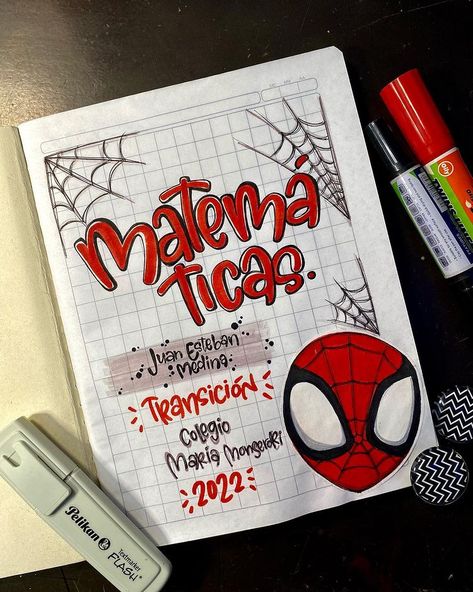 Matemá
ticas.
Juan Esteban
Medina
Transición
Colegio
María Monserdri
2022
Pelikan
Textmarker
FLASH